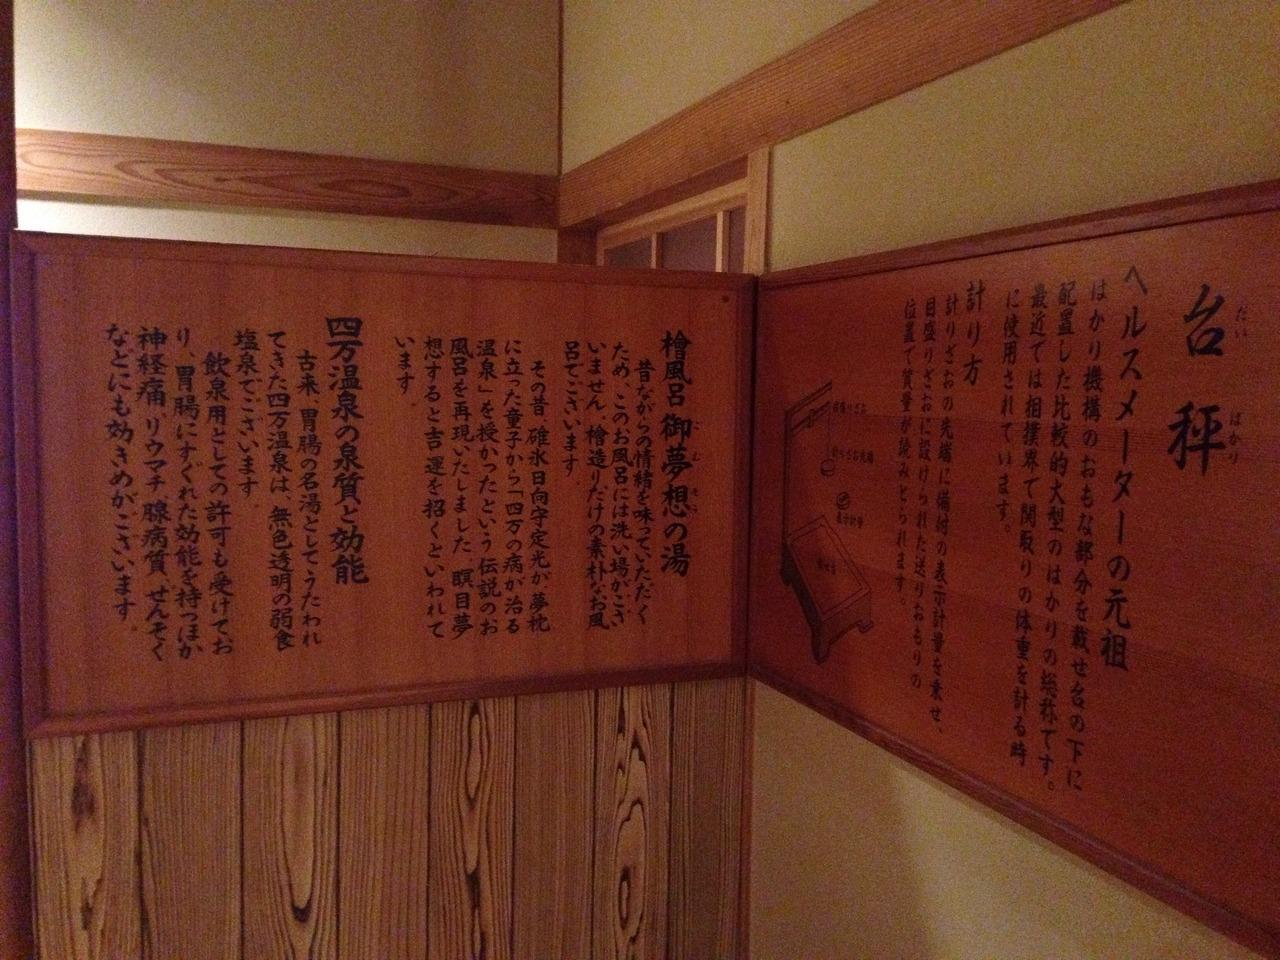 台秤
だい
ばかり
ヘルスメーターの元祖
はかり機構のおもな部分を載せ台の下に
配置した比較的大型のはかりの総称です。
最近では相撲界で関取りの体重を計る時
に使用されています。
計り方
計りざおの先端に備付の表示計量を乗せ、
目盛りざおに設けられた送りおもりの
位置で質量が読みとられます。
檜風呂 御夢想の湯
ごむそう
昔ながらの情緒を味っていただく
ため、このお風呂には洗い場がござ
いません。檜造りだけの素朴なお風
呂でございます。
その昔、碓氷日向守定光が、夢枕
に立った童子から「四万の病が治る
温泉」を授かったという伝説のお
風呂を再現いたしました。瞑目夢
想すると吉運を招くといわれて
います。
四万温泉の泉質と効能
古来、胃腸の名湯としてうたわれ
てきた四万温泉は、無色透明の弱食
塩泉でございます。
飲泉用としての許可も受けてお
り、胃腸にすぐれた効能を持つほか
神経痛、リウマチ、腺病質、ぜんそく
などにも効きめがございます。